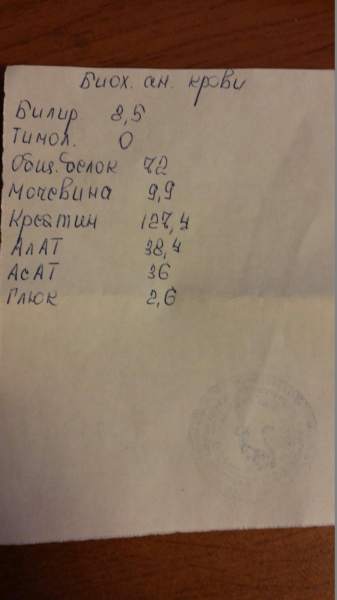 Биох. ан. крови
Билир 8,5
Тимол. 0
Общ. белок 72
Мочевина 9,9
Креатин 127,4
АлАТ 38,4
АсАТ 36
Глюк 2,6